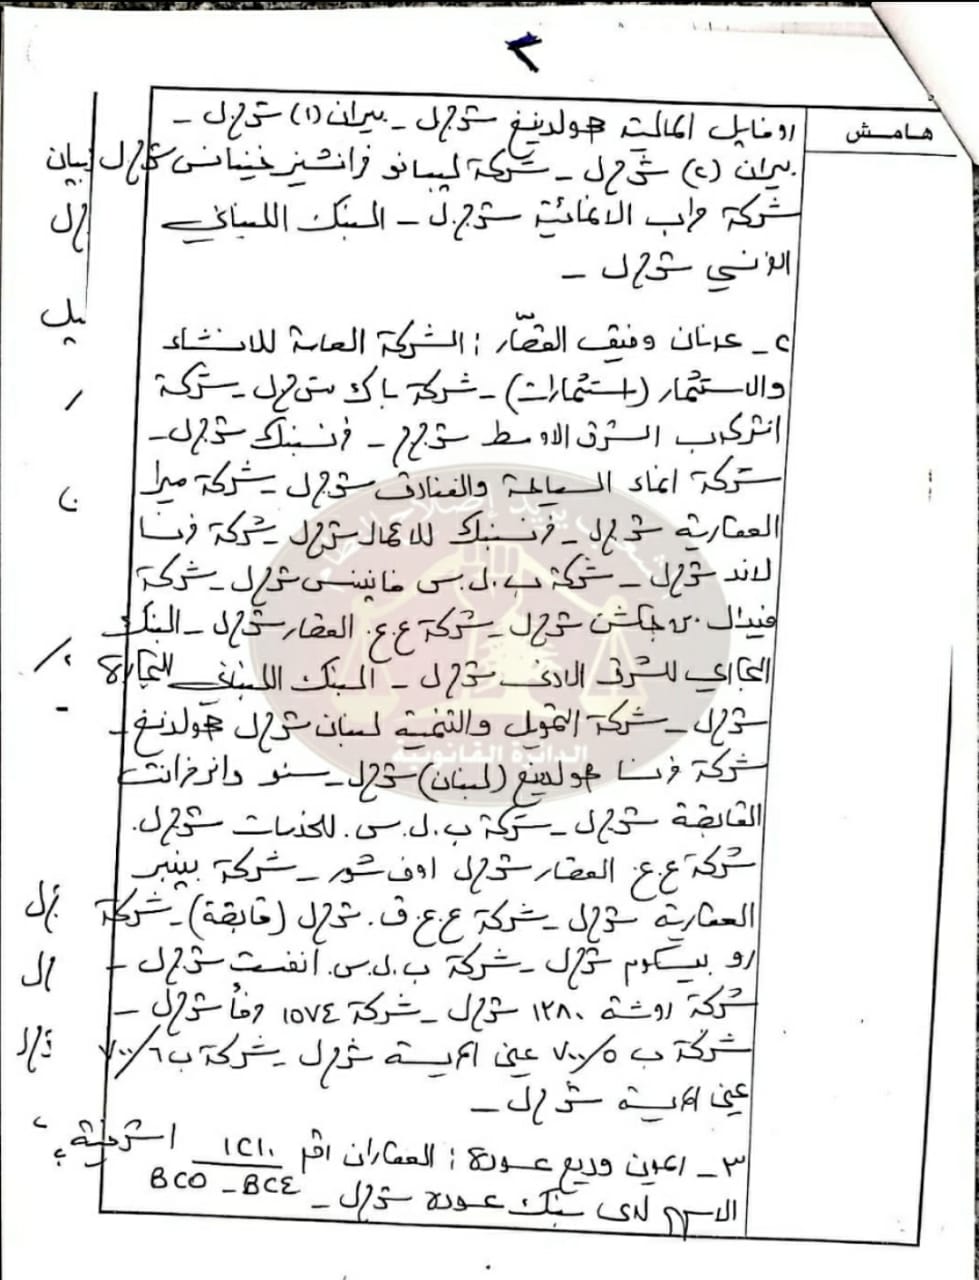 ٢
هامش
روفايل المالية هولدينغ ش.م.ل - بيران (١) ش.م.ل -
بيران (٢) ش.م.ل - شركة ليبانو فرانشيز فينانس ش.م.ل
شركة مراب الانمائية ش.م.ل - البنك اللبناني
الفرنسي ش.م.ل -
٢- عدنان وفيق القصّار : الشركة العامة للانشاء
والاستثمار (استثمارات) - شركة باك ش.م.ل - شركة
انتركوب الشرق الاوسط ش.م.م - فرنسبنك ش.م.ل -
شركة انماء السياحة والفنادق ش.م.ل - شركة ميرا
العقارية ش.م.ل - فرنسبنك للاعمال ش.م.ل - شركة فرنسا
لاند ش.م.ل - شركة ب.ل.س فاينينس ش.م.ل - شركة
فيدال بروجاكشن ش.م.ل - شركة ع.ع. العقار ش.م.ل - البنك
التجاري للشرق الادنى ش.م.ل - البنك اللبناني للتجارة
ش.م.ل - شركة التمويل والتنمية لبنان ش.م.ل هولدينغ -
شركة فرنسا هولدينغ (لبنان) ش.م.ل -
القابضة ش.م.ل - شركة ب.ل.س. للخدمات ش.م.ل.
شركة ع.ع. العقار ش.م.ل اوف شور - شركة بيبر
العقارية ش.م.ل - شركة ع.ع.ق. ش.م.ل (قابضة) - شركة
رو بيسكوم ش.م.ل - شركة ب.ل.س. انفست ش.م.ل -
شركة روشة ١٢٨٠ ش.م.ل - شركة ١٥٧٤ مرفأ ش.م.ل -
شركة ب ٧٠٠/٥ عين المريسة ش.م.ل - شركة ب ٧٠٠/٦
عين المريسة ش.م.ل -
٣- ريمون وديع عودة : العقاران رقم ١٢١٠ اشرفية
B٢٥ - B٢٤
الاسهم لدى بنك عودة ش.م.ل -
الشعب يريد إصلاح النظام
الدائرة القانونية